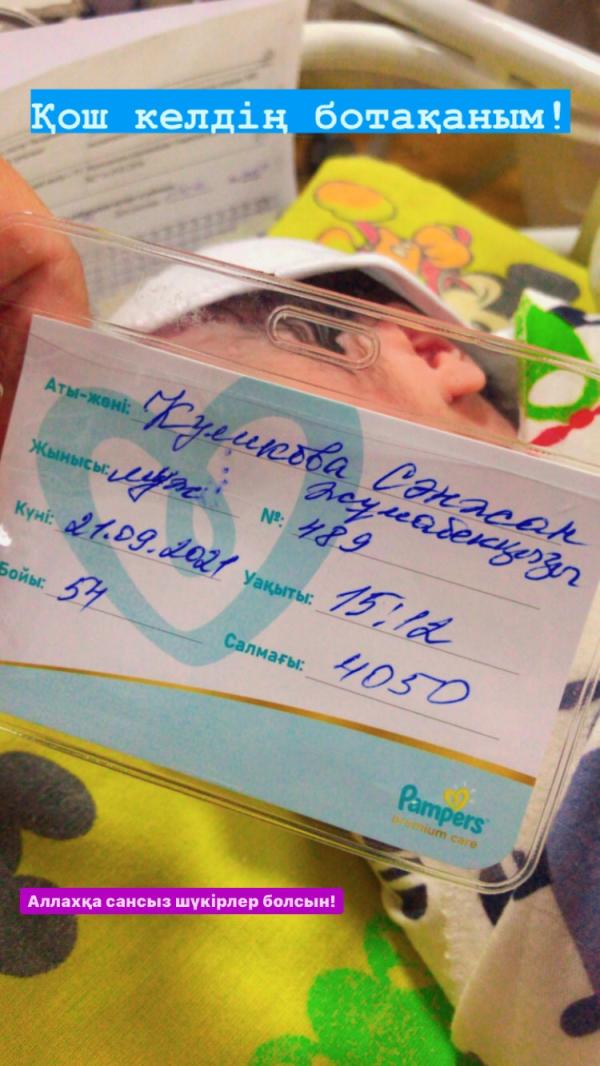 Қош келдің ботақаным!
Аты-жөні: Куликова Сәнжан
Жынысы: муж
жумабекқызы
Күні: 21.09.2021
№: 489
Бойы: 54
Уақыты: 15:12
Салмағы: 4050
Pampers
premium care
Аллахқа сансыз шүкірлер болсын!